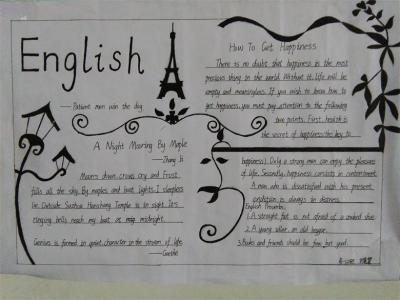 English
— Patient men win the day
A Night Mooring By Maple
— Zhang Ji
Moons down crows cry and Frost
fills all the sky, By maples and boat lights, I sleepless
lie. Outside Suzhou Hanshang Temple is in sight. Its
ringing bells reach my boat at mid midnight.
Genius is formed in quiet, character in the stream of life.
— Goethe
How To Get Happiness
There is no doubt that happiness is the most
precious thing in the world. Without it, life will be
empty and meaningless. If you wish to know how to
get happiness, you must pay attention to the following
two points. First, health is
the secret of happiness (the key to
happiness). Only a strong man can enjoy the pleasures
of life. Secondly, happiness consists in contentment.
A man who is dissatisfied with his present
condition is always in distress.
English Proverbs
1. A straight foot is not afraid of a crooked shoe.
2. A young idler, an old beggar.
3. Books and friends should be few but good.